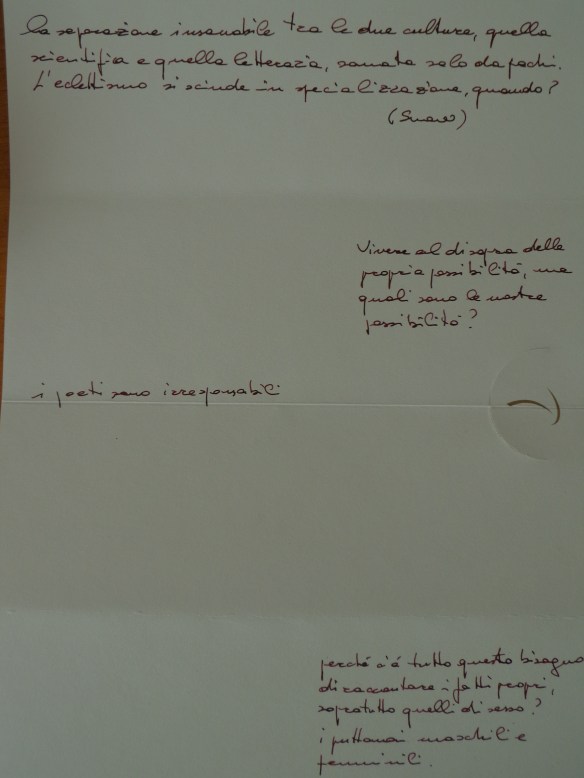 la separazione insanabile tra le due culture, quella
scientifia e quella letteraria, sanata solo da pochi.
L'eclettismo si scinde in specializzazione, quando?
(Snow)
Vivere al disopra delle
propria possibilità, ma
quali sono le nostre
possibilità?
i poeti sono irresponsabili
perché c'è tutto questo bisogno
di raccontare i fatti propri,
sopratutto quelli di sesso?
i puttanai maschili e
femminili.